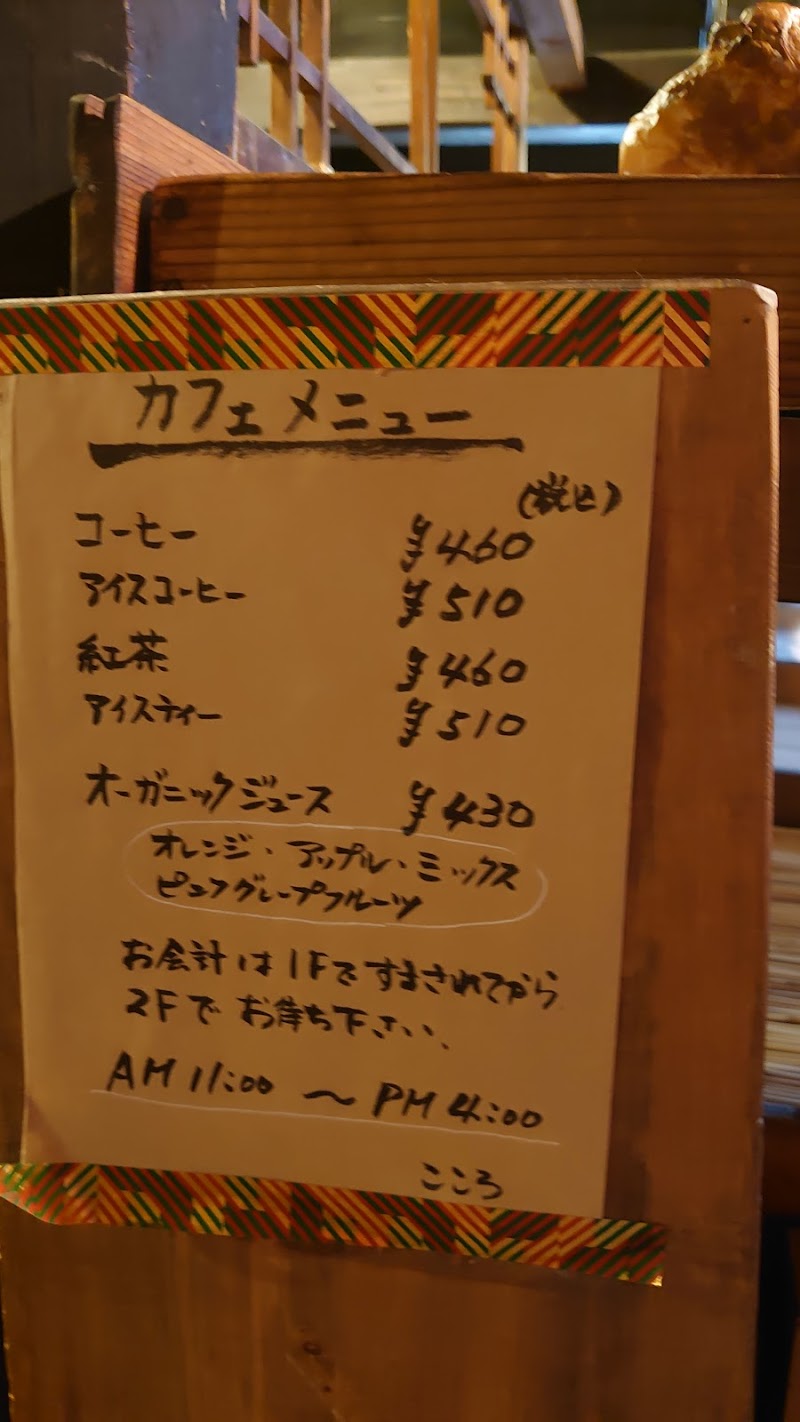 カフェ メニュー
(税込)
コーヒー ¥460
アイスコーヒー ¥510
紅茶 ¥460
アイスティー ¥510
オーガニックジュース ¥430
オレンジ・アップル・ミックス
ピュアグレープフルーツ
お会計は1Fですまされてから
2Fでお待ち下さい、
AM 11:00 〜 PM 4:00
こころ